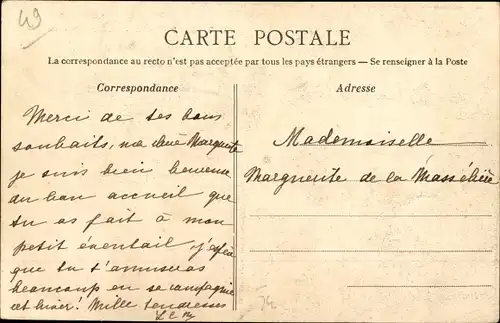 49
CARTE POSTALE
La correspondance au recto n'est pas acceptée par tous les pays étrangers — Se renseigner à la Poste
Correspondance
Adresse
Merci de tes bons
souhaits, ma chère Marguerite
je suis bien heureuse
du bon accueil que
tu as fait à mon
petit éventail j'espère
que tu t'amuseras
beaucoup en sa compagnie
cet hiver! Mille tendresses
Mademoiselle
Marguerite de la